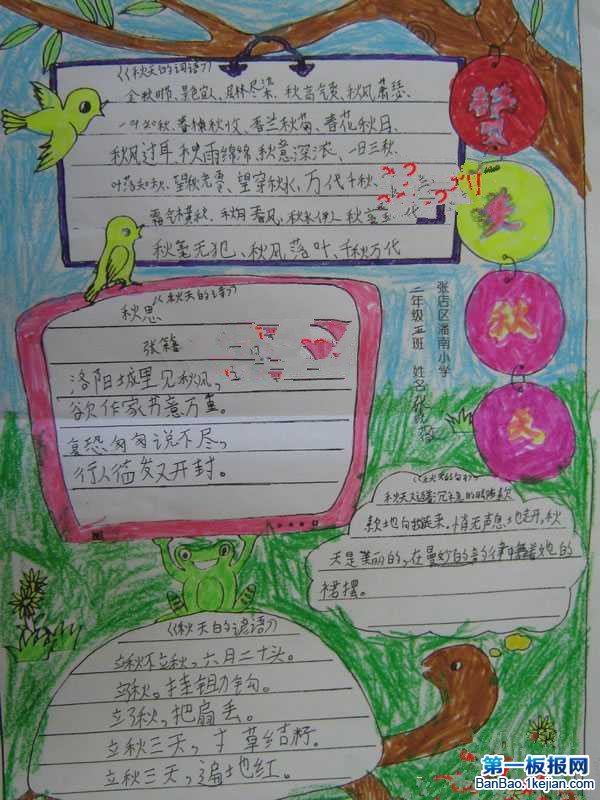 《秋天的词语》
金秋时节、景色宜人、层林尽染、秋高气爽、秋风萧瑟、
一叶知秋、春种秋收、春兰秋菊、春花秋月、
秋风过耳、秋雨绵绵、秋意深浓、一日三秋、
叶落知秋、望秋先零、望穿秋水、万代千秋、
霜气横秋、春风、秋水伊人
秋毫无犯、秋风落叶、千秋万代
美
秋
天
《秋天的诗》
秋思
张籍
洛阳城里见秋风，
欲作家书意万重。
复恐匆匆说不尽，
行人临发又开封。
张店区潘南小学
二年级五班 姓名
《秋天的句子》
秋天又迈着
款地向我走来，悄无声息地走开，秋
天是美丽的，在曼妙的音律中舞着她的
裙摆。
《秋天的谚语》
立秋不立秋，六月二十头。
立秋。挂锄钩。
立了秋，把扇丢。
立秋三天，寸草结籽。
立秋三天，遍地红。
第一板报网
BanBao.1kejian.com